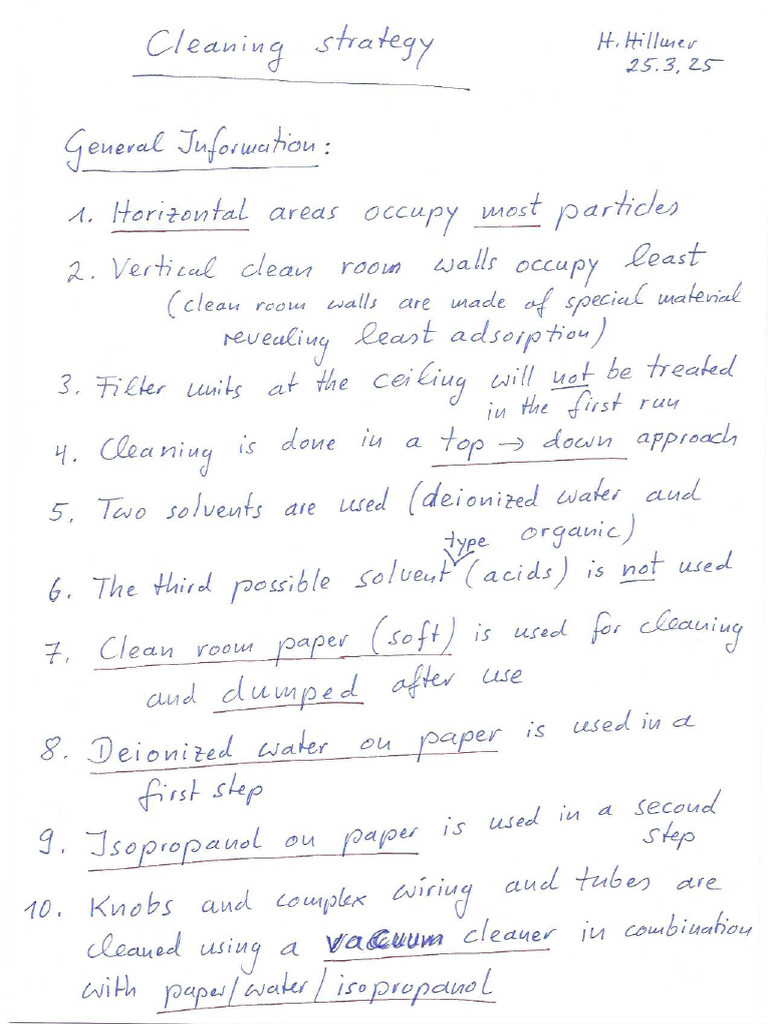 Cleaning strategy
H. Hillmer
25.3.25
General Information:
1. Horizontal areas occupy most particles
2. Vertical clean room walls occupy least
(clean room walls are made of special material
revealing least adsorption)
3. Filter units at the ceiling will not be treated
in the first run
4. Cleaning is done in a top → down approach
5. Two solvents are used (deionized water and
organic)
6. The third possible solvent type (acids) is not used
7. Clean room paper (soft) is used for cleaning
and dumped after use
8. Deionized water on paper is used in a
first step
9. Isopropanol on paper is used in a second
step
10. Knobs and complex wiring and tubes are
cleaned using a vacuum cleaner in combination
with paper/water/isopropanol